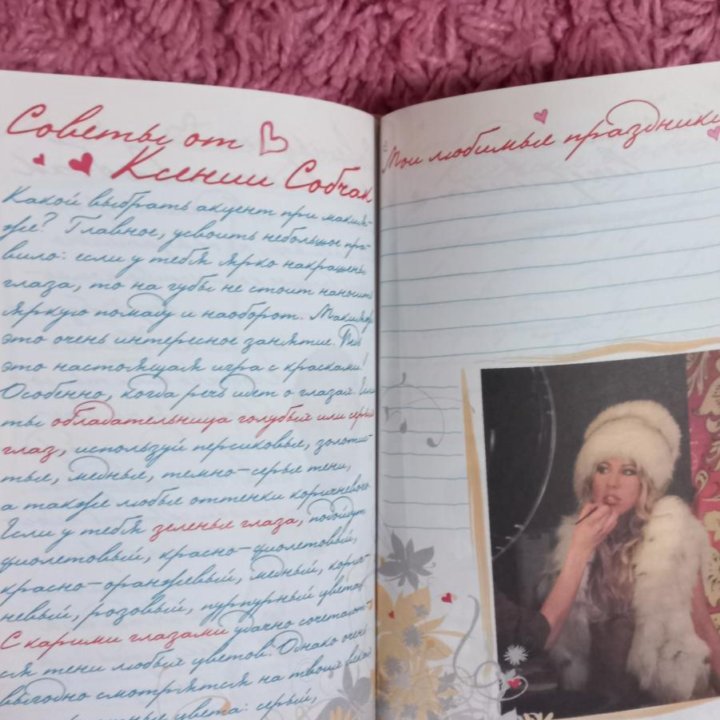 Советы от
Ксении Собчак
Какой выбрать акцент при макия-
же? Главное, усвоить небольшое пра-
вило: если у тебя ярко накрашены
глаза, то на губы не стоит наносить
яркую помаду и наоборот. Макияж
это очень интересное занятие.
это настоящая игра с красками!
Особенно, когда речь идет о глазах.
ты обладательница голубых или серых
глаз, используй персиковые, золотис-
тые, медные, темно-серые тени,
а также любые оттенки коричневого.
Если у тебя зеленые глаза, подойдут
фиолетовый, красно-фиолетовый,
красно-оранжевый, медный, корич-
невый, розовый, пурпурный цвета.
С карими глазами удачно сочетают-
ся тени любых цветов. Однако очень
выгодно смотрятся на твоих веках
цвета: серый,
Мои любимые праздники